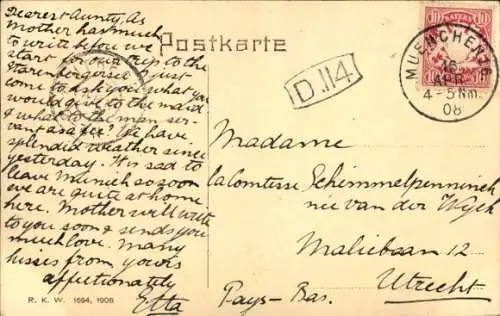 Dearest Aunty, As
Mother has much
to write before we
start for our trip to the
Starenbergersee I just
come to ask you what you
would give to the maid
& what to the man ser-
vant as a fee? We have
splendid weather since
yesterday. It is sad to
leave Munich so soon
we are quite at home
here. Mother will write
to you soon & sends you
much love. Many
kisses from yours
affectionately
Etta
R. K. W. 1594, 1906
Postkarte
D.114
10 BAYERN 10
MUENCHEN
16
APR
4-5 Nm.
08
Madame
la Comtesse Schimmelpenninck
née van der Wyck
Maliebaan 12
Utrecht
Pays-Bas.